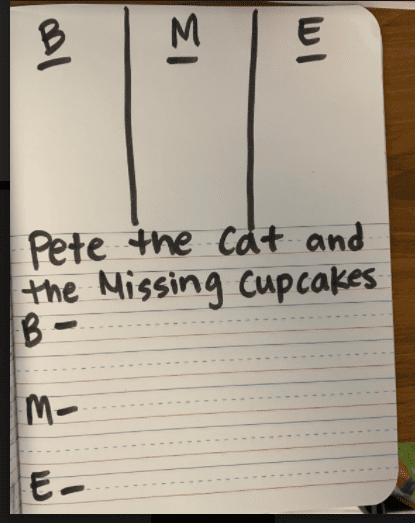 B M E
Pete the Cat and
the Missing Cupcakes
B-
M-
E-